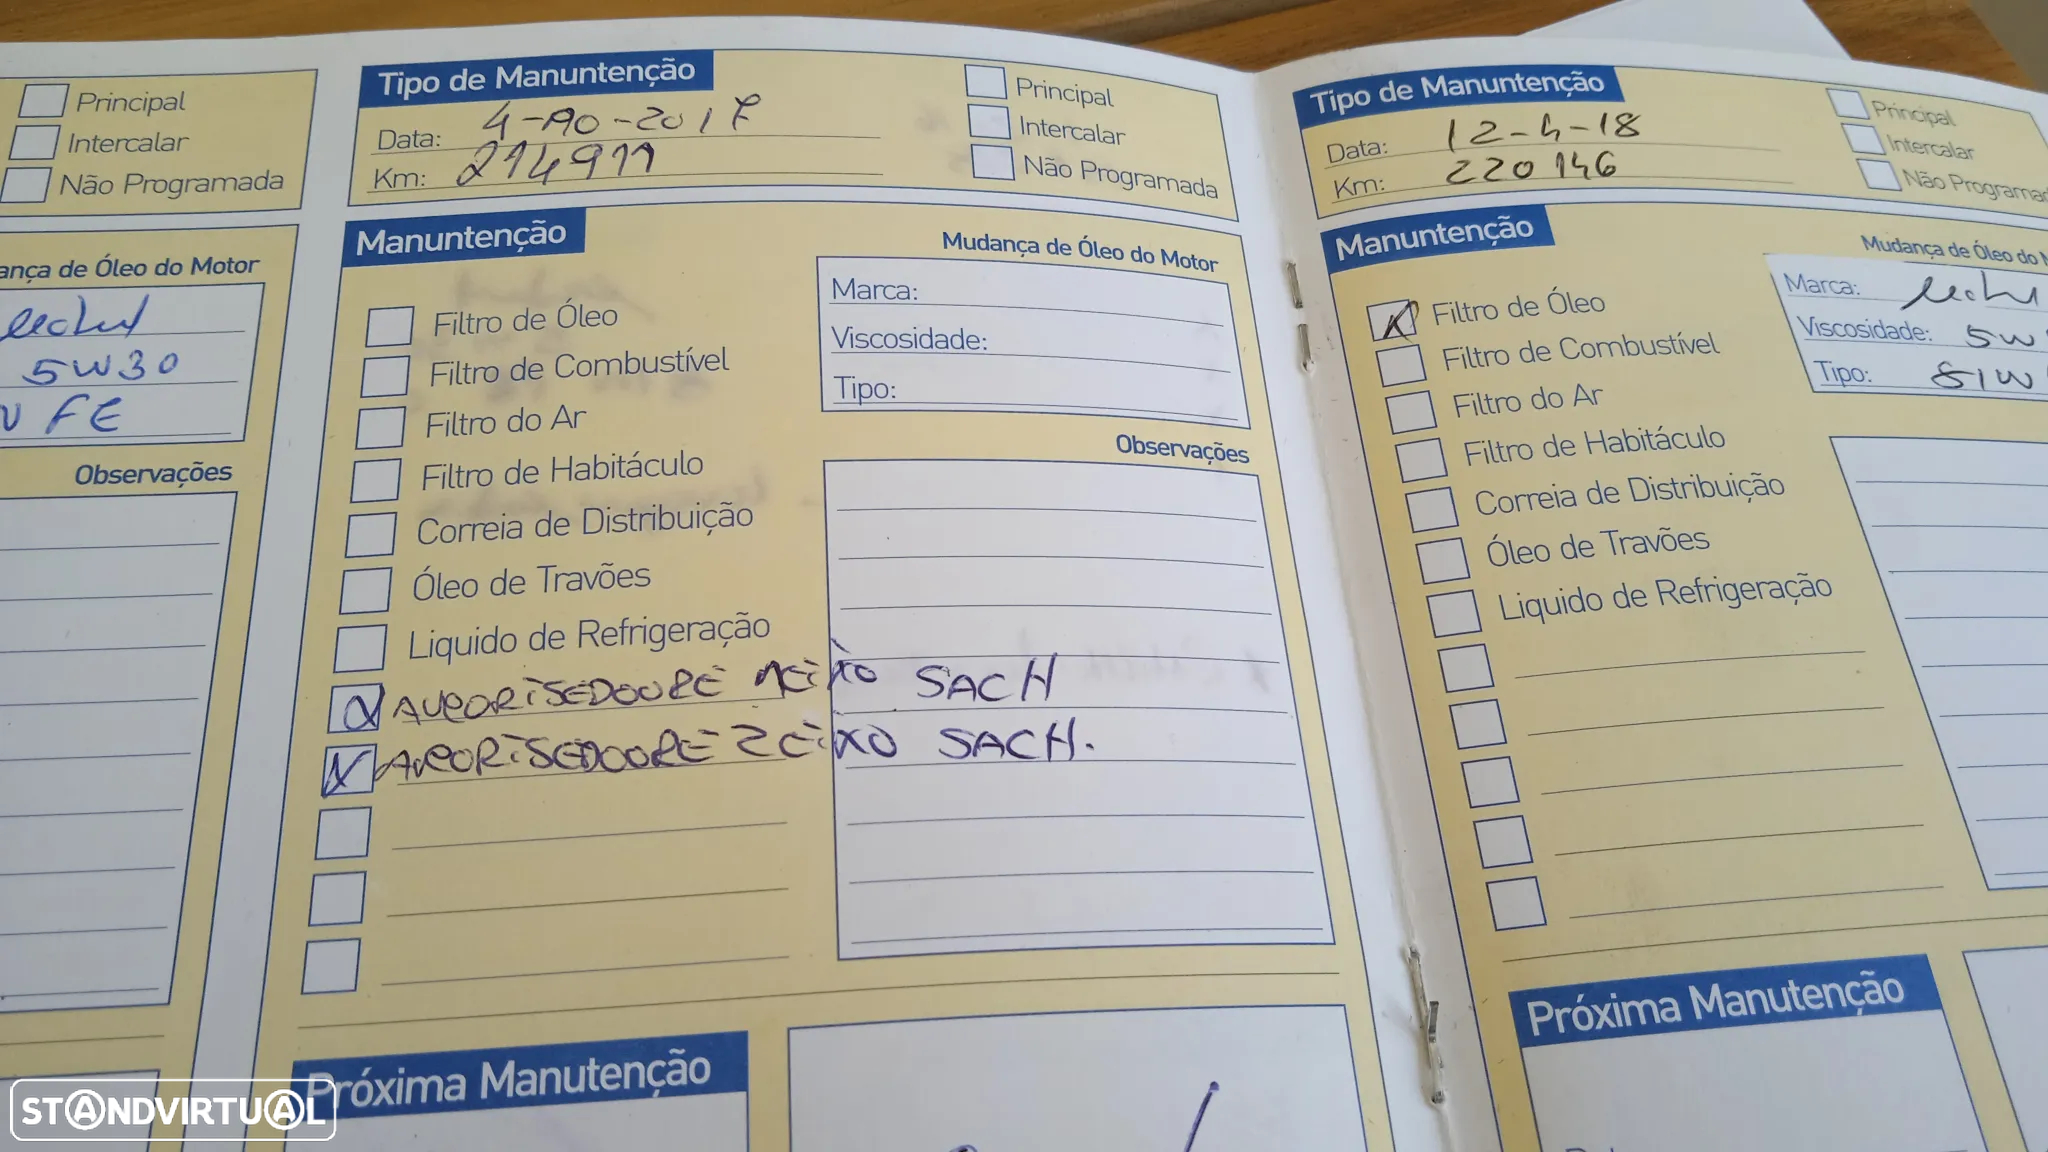 Principal
Intercalar
Não Programada
ança de Óleo do Motor
5W30
FE
Observações
Tipo de Manuntenção
Data: 4-10-2017
Km: 214911
Principal
Intercalar
Não Programada
Manuntenção
Mudança de Óleo do Motor
Marca:
Viscosidade:
Tipo:
Filtro de Óleo
Filtro de Combustível
Filtro do Ar
Filtro de Habitáculo
Correia de Distribuição
Óleo de Travões
Liquido de Refrigeração
Observações
SACH
SACH.
Próxima Manutenção
Tipo de Manuntenção
Data: 12-4-18
Km: 220146
Principal
Intercalar
Não Programad
Manuntenção
Mudança de Óleo do M
Marca:
Viscosidade: 5W
Tipo:
Filtro de Óleo
Filtro de Combustível
Filtro do Ar
Filtro de Habitáculo
Correia de Distribuição
Óleo de Travões
Liquido de Refrigeração
Próxima Manutenção
STANDVIRTUAL